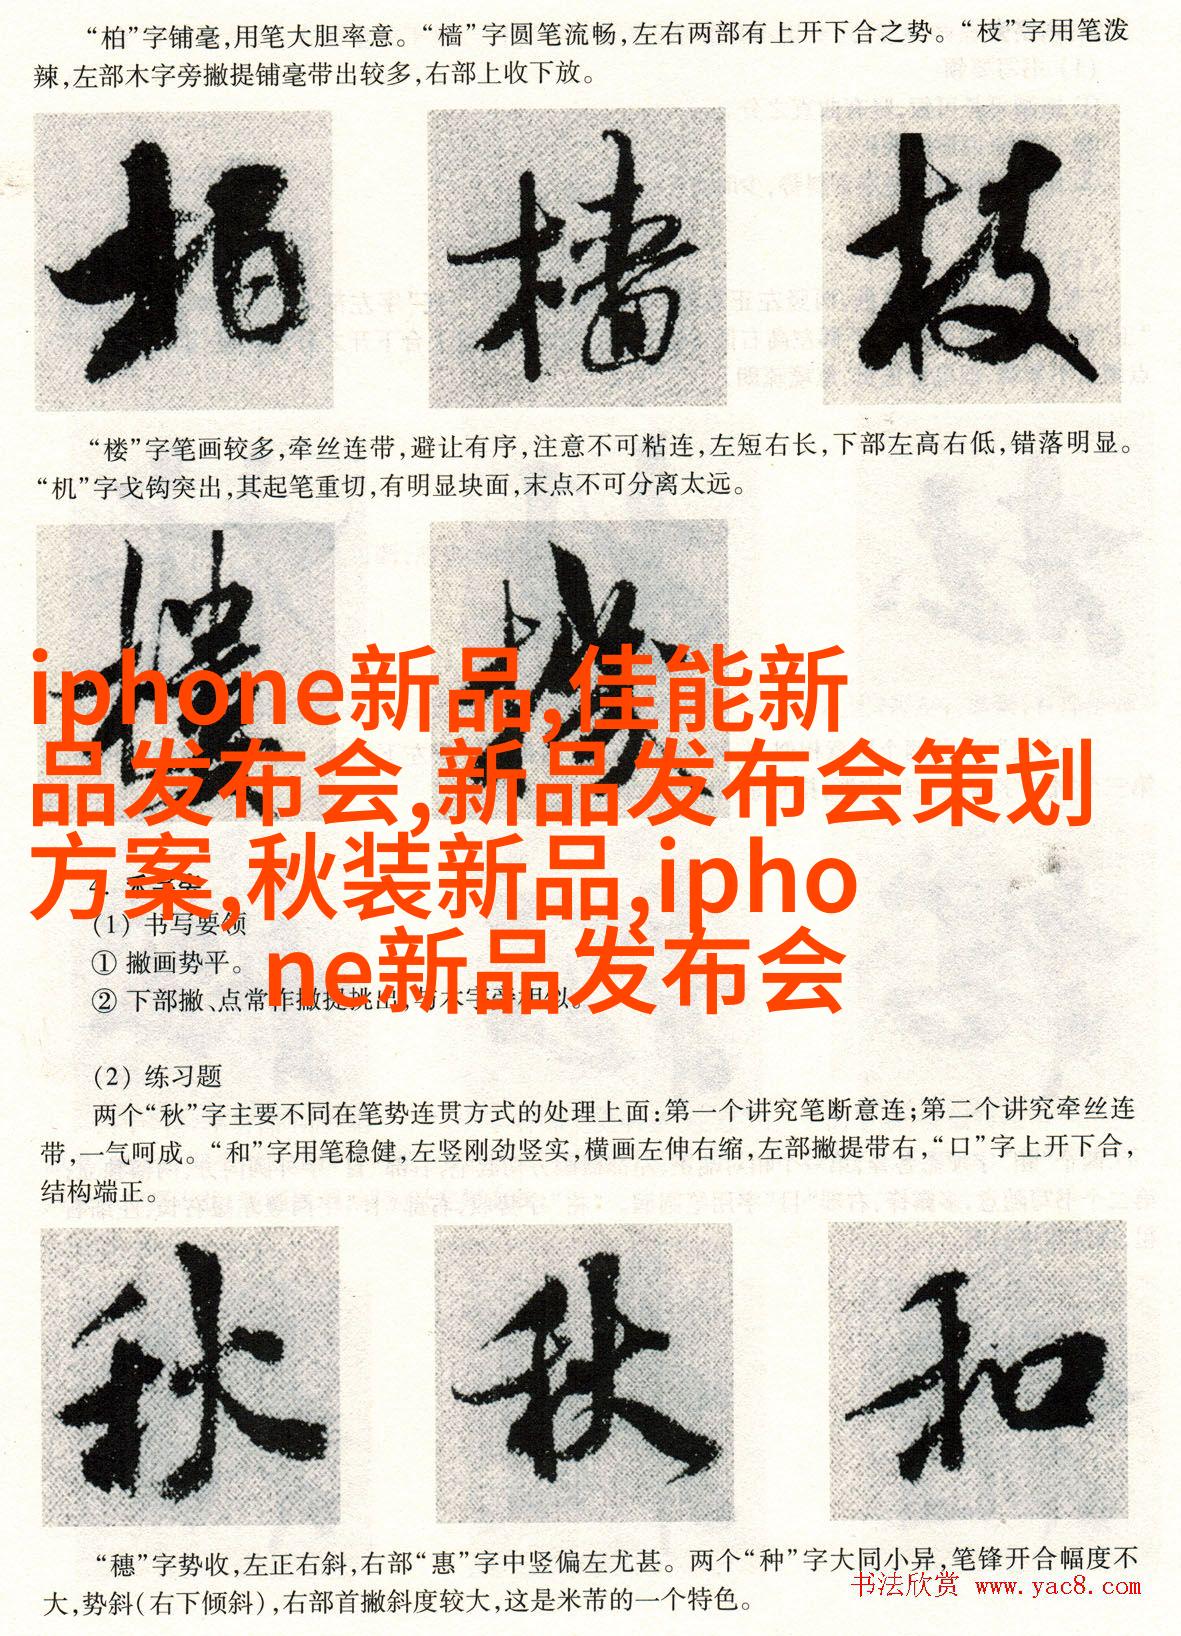 “柏”字铺毫,用笔大胆率意。“樯”字圆笔流畅,左右两部有上开下合之势。“枝”字用笔泼
辣,左部木字旁撇提铺毫带出较多,右部上收下放。
柏 樯 枝
“楼”字笔画较多,牵丝连带,避让有序,注意不可粘连,左短右长,下部左高右低,错落明显。
“机”字戈钩突出,其起笔重切,有明显块面,末点不可分离太远。
iphone新品,佳能新
品发布会,新品发布会策划
方案,秋装新品,ipho
ne新品发布会
(1) 书写要领
① 撇画势平。
② 下部撇、点常作撇提挑出,与木字旁相似。
(2) 练习题
两个“秋”字主要不同在笔势连贯方式的处理上面:第一个讲究笔断意连;第二个讲究牵丝连
带,一气呵成。“和”字用笔稳健,左竖刚劲竖实,横画左伸右缩,左部撇提带右,“口”字上开下合,
结构端正。
秋 秋 和
“穗”字势收,左正右斜,右部“惠”字中竖偏左尤甚。两个“种”字大同小异,笔锋开合幅度不
大,势斜(右下倾斜),右部首撇斜度较大,这是米芾的一个特色。
书法欣赏 www.yac8.com